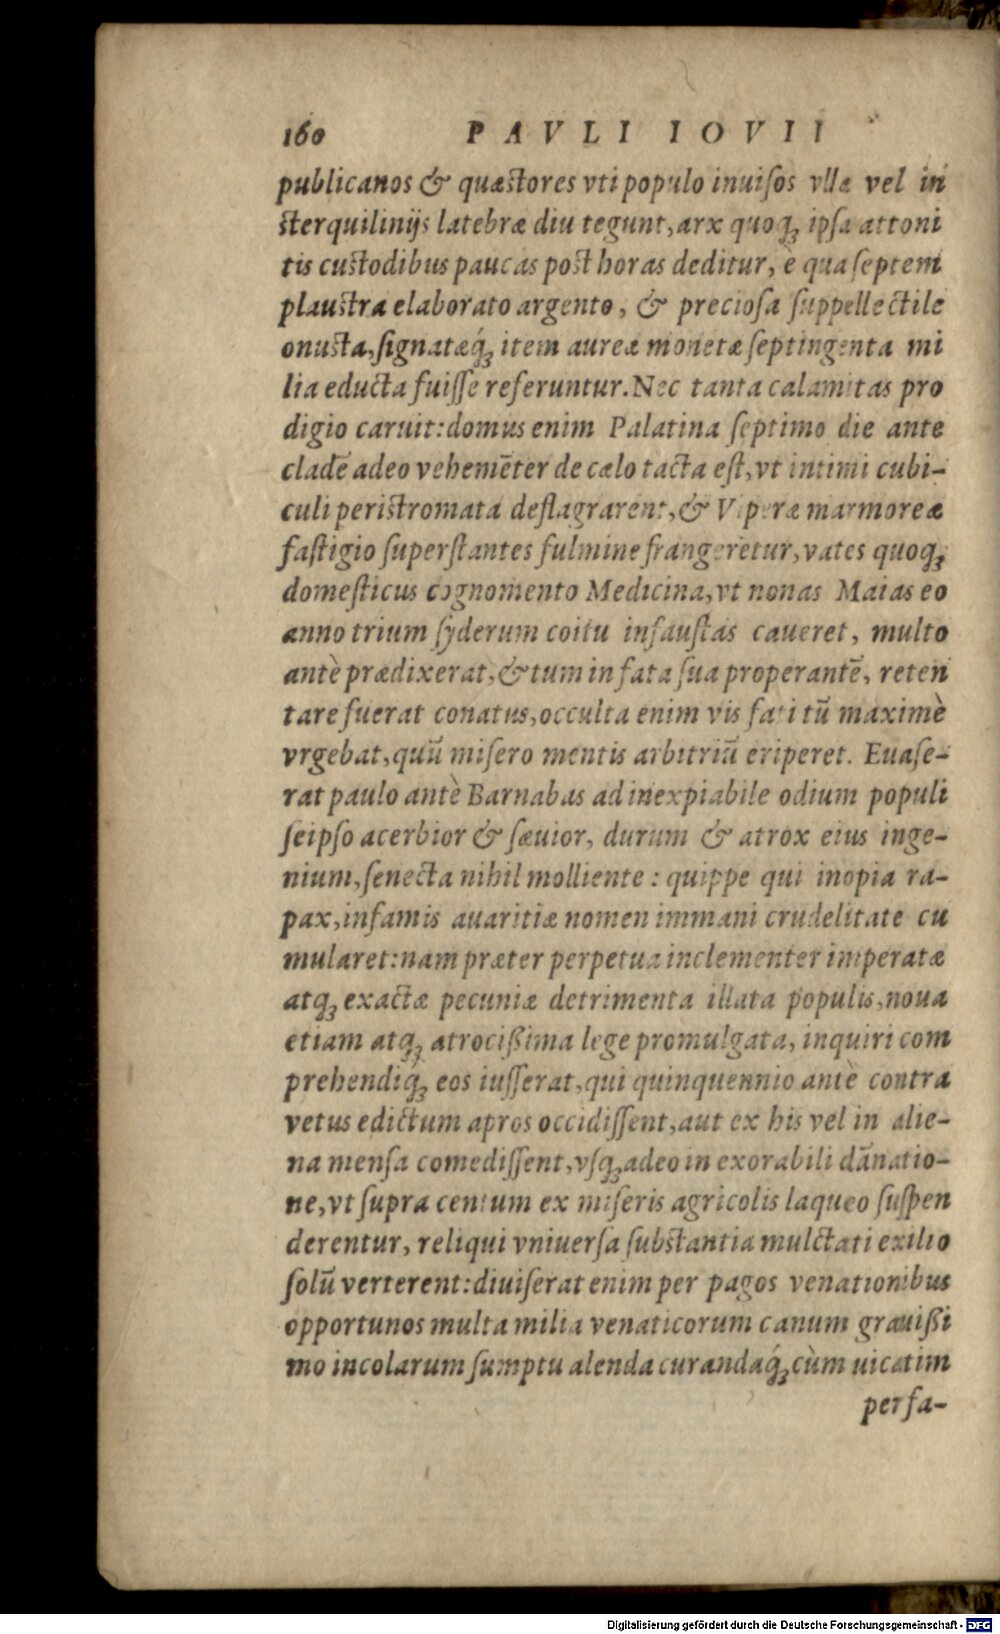 160 PAVLI IOVII
publicanos & quæstores vti populo inuisos vllæ vel in
sterquilinijs latebræ diu tegunt, arx quoq; ipsa attoni
tis custodibus paucas post horas deditur, è qua septem
plaustra elaborato argento, & preciosa suppellectile
onusta, signatæq́; item aureæ monetæ septingenta mi
lia educta fuisse referuntur. Nec tanta calamitas pro
digio caruit: domus enim Palatina septimo die ante
cladē adeo vehemēter de cælo tacta est, vt intimi cubi-
culi peristromata deflagrarent, & Viperæ marmoreæ
fastigio superstantes fulmine frangeretur, vates quoq;
domesticus cognomento Medicina, vt nonas Maias eo
anno trium syderum coitu infaustas caueret, multo
antè prædixerat, & tum in fata sua properantē, reten
tare fuerat conatus, occulta enim vis fati tū maximè
vrgebat, quū misero mentis arbitriū eriperet. Euase-
rat paulo antè Barnabas ad inexpiabile odium populi
seipso acerbior & sæuior, durum & atrox eius inge-
nium, senecta nihil molliente: quippe qui inopia ra-
pax, infamis auaritiæ nomen immani crudelitate cu
mularet: nam præter perpetua inclementer imperatæ
atq; exactæ pecuniæ detrimenta illata populis, noua
etiam atq; atrocißima lege promulgata, inquiri com
prehendiq́; eos iusserat, qui quinquennio antè contra
vetus edictum apros occidissent, aut ex his vel in alie-
na mensa comedissent, vsq; adeo in exorabili dānatio-
ne, vt supra centum ex miseris agricolis laqueo suspen
derentur, reliqui vniuersa substantia mulctati exilio
solū verterent: diuiserat enim per pagos venationibus
opportunos multa milia venaticorum canum grauißi
mo incolarum sumptu alenda curandaq́; cùm uicatim
per fa-
Digitalisierung gefördert durch die Deutsche Forschungsgemeinschaft - DFG